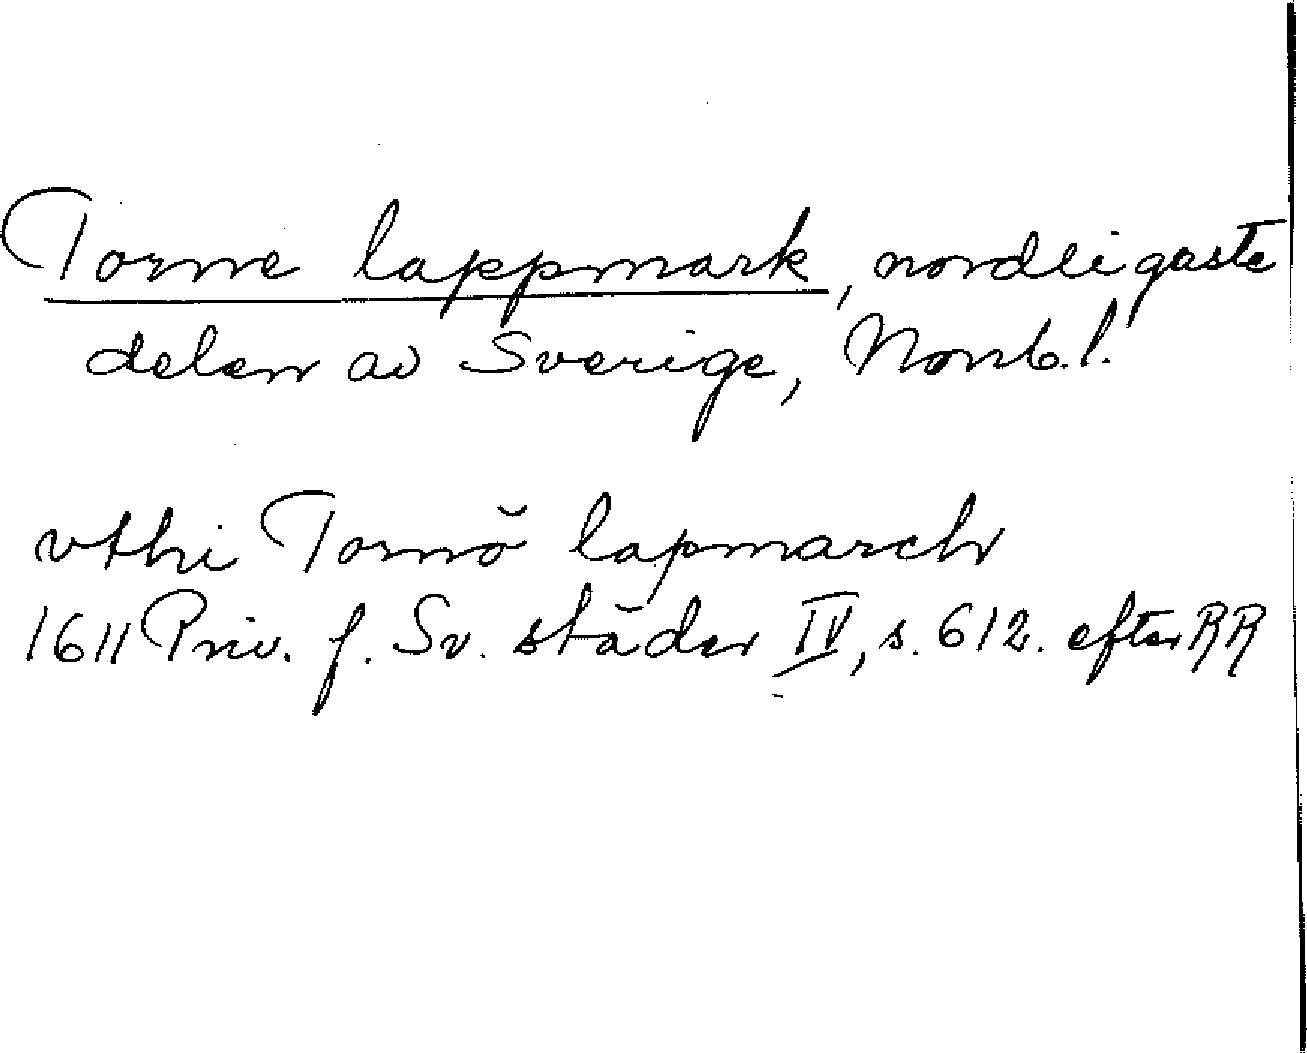 Torne lappmark, nordligaste
delen av Sverige, Norrb.l.
vthi Tornö lapmarch
1611 Priv. f. Sv. städer IV, s. 612. efter RR